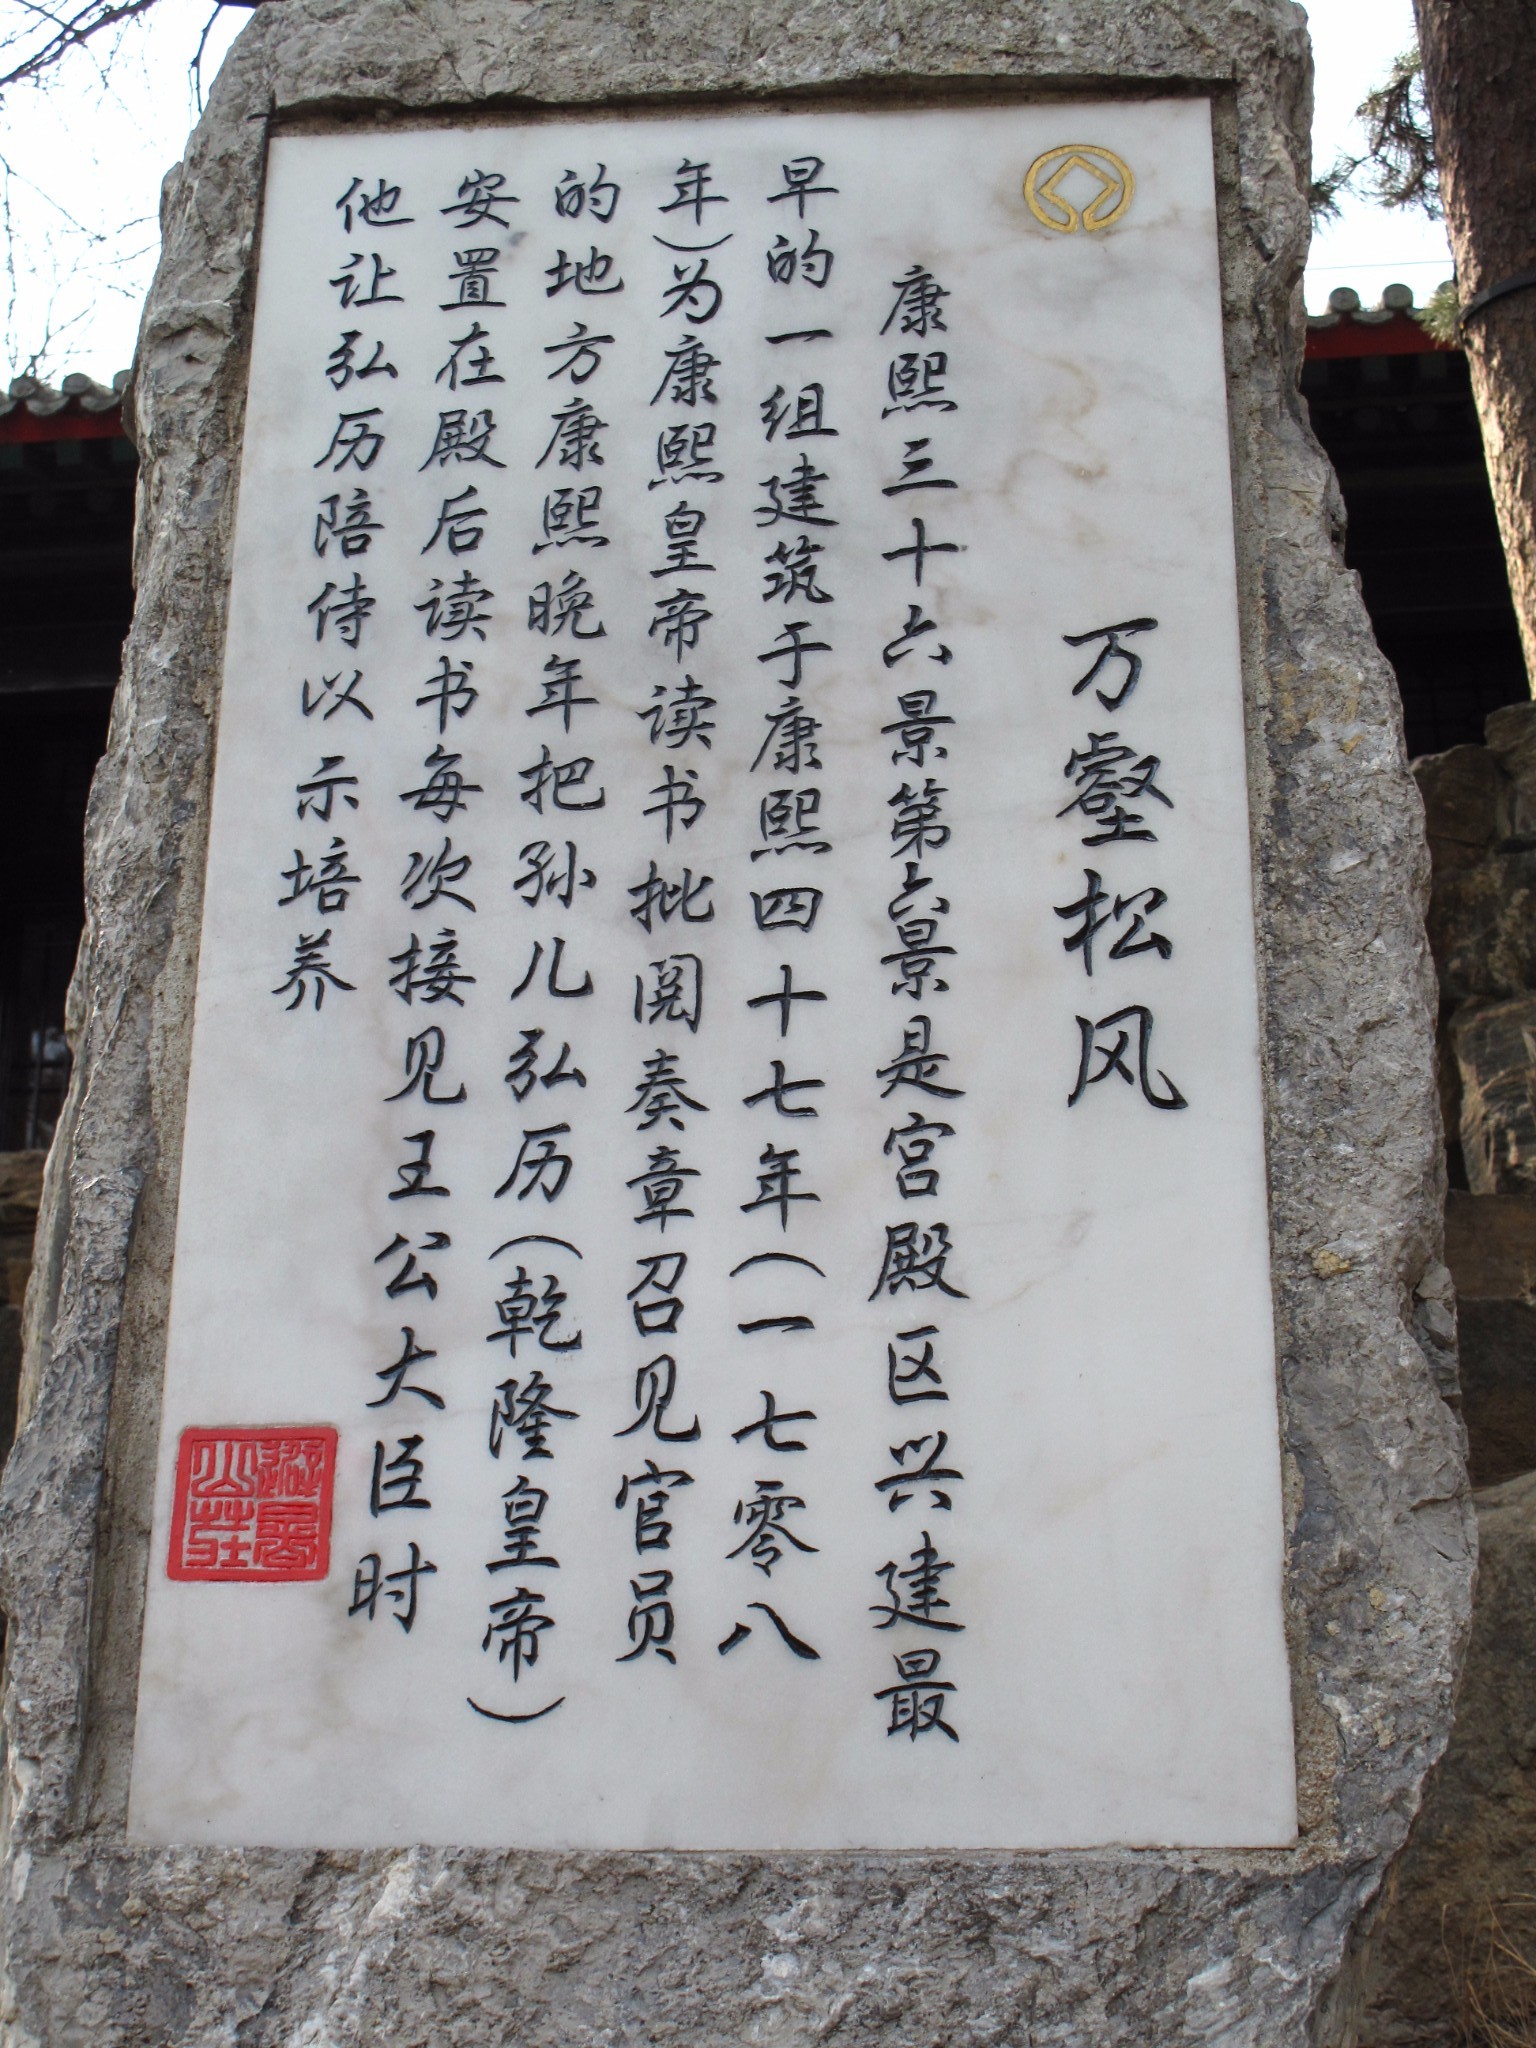 万壑松风
康熙三十六景第六景是宫殿区兴建最
早的一组建筑于康熙四十七年(一七零八
年)为康熙皇帝读书批阅奏章召见官员
的地方康熙晚年把孙儿弘历(乾隆皇帝)
安置在殿后读书每次接见王公大臣时
他让弘历陪侍以示培养
避暑
山莊